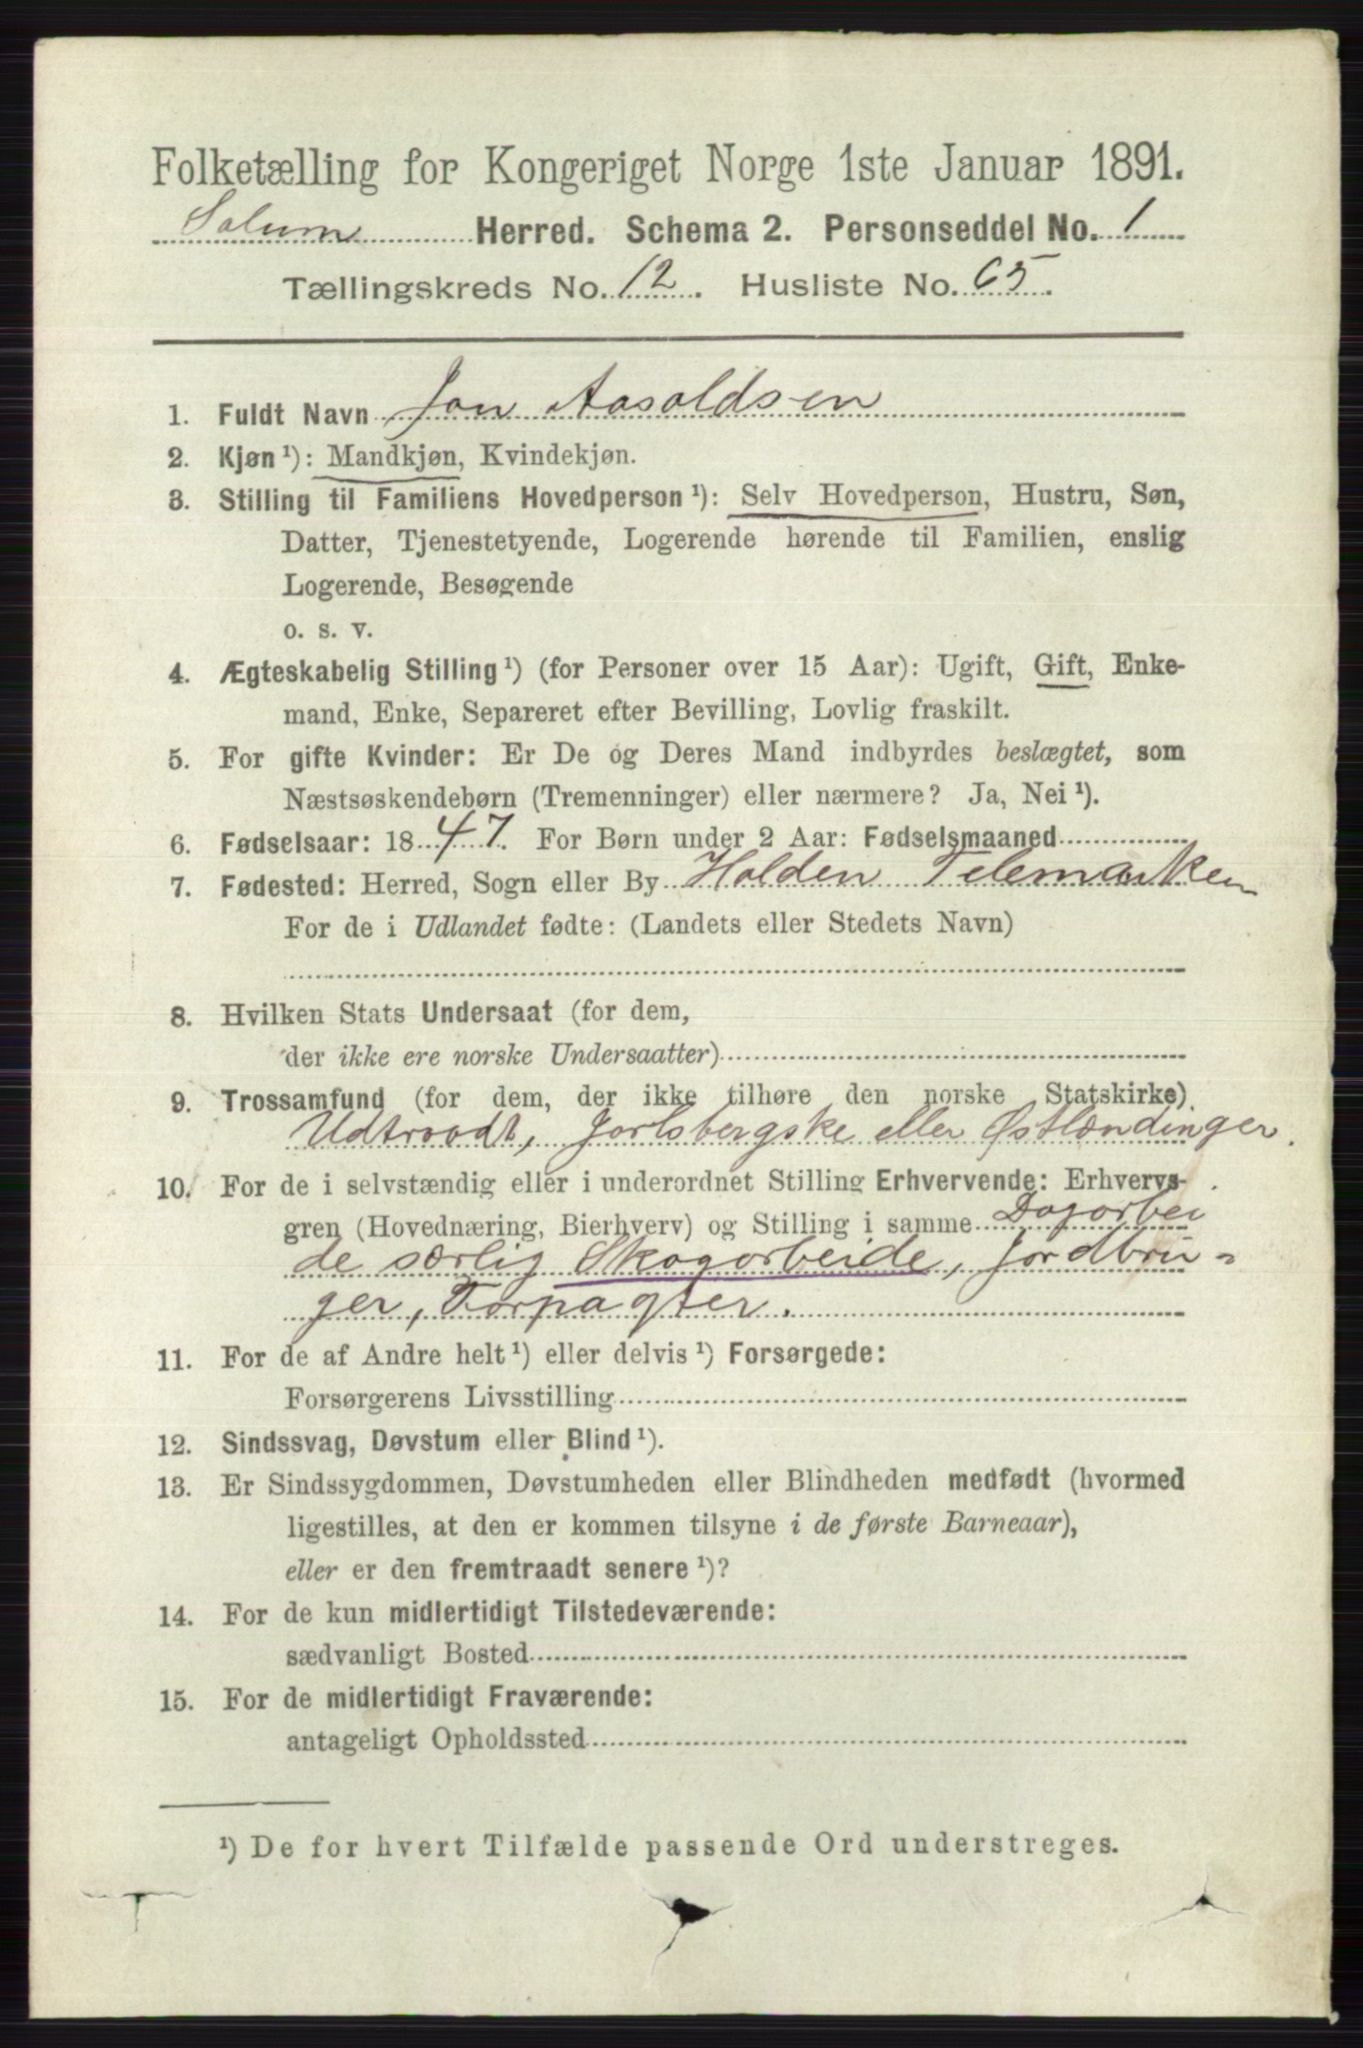 Folketælling for Kongeriget Norge 1ste Januar 1891.
Solum Herred. Schema 2. Personseddel No. 1
Tællingskreds No. 12. Husliste No. 65.
1. Fuldt Navn Jon Aasoldsen
2. Kjøn ¹): Mandkjøn, Kvindekjøn.
3. Stilling til Familiens Hovedperson ¹): Selv Hovedperson, Hustru, Søn,
Datter, Tjenestetyende, Logerende hørende til Familien, enslig
Logerende, Besøgende
o. s. v.
4. Ægteskabelig Stilling ¹) (for Personer over 15 Aar): Ugift, Gift, Enke-
mand, Enke, Separeret efter Bevilling, Lovlig fraskilt.
5. For gifte Kvinder: Er De og Deres Mand indbyrdes beslægtet, som
Næstsøskendebørn (Tremenninger) eller nærmere? Ja, Nei ¹).
6. Fødselsaar: 1847. For Børn under 2 Aar: Fødselsmaaned
7. Fødested: Herred, Sogn eller By Holden Telemarken
For de i Udlandet fødte: (Landets eller Stedets Navn)
8. Hvilken Stats Undersaat (for dem,
der ikke ere norske Undersaatter)
9. Trossamfund (for dem, der ikke tilhøre den norske Statskirke)
Udtraadt, Jarlsbergske eller Østlændinger.
10. For de i selvstændig eller i underordnet Stilling Erhvervende: Erhvervs-
gren (Hovednæring, Bierhverv) og Stilling i samme Dagarbei
de særlig Skogarbeide, Jordbru-
ger, Forpagter.
11. For de af Andre helt ¹) eller delvis ¹) Forsørgede:
Forsørgerens Livsstilling
12. Sindssvag, Døvstum eller Blind ¹).
13. Er Sindssygdommen, Døvstumheden eller Blindheden medfødt (hvormed
ligestilles, at den er kommen tilsyne i de første Barneaar),
eller er den fremtraadt senere ¹)?
14. For de kun midlertidigt Tilstedeværende:
sædvanligt Bosted
15. For de midlertidigt Fraværende:
antageligt Opholdssted
¹) De for hvert Tilfælde passende Ord understreges.